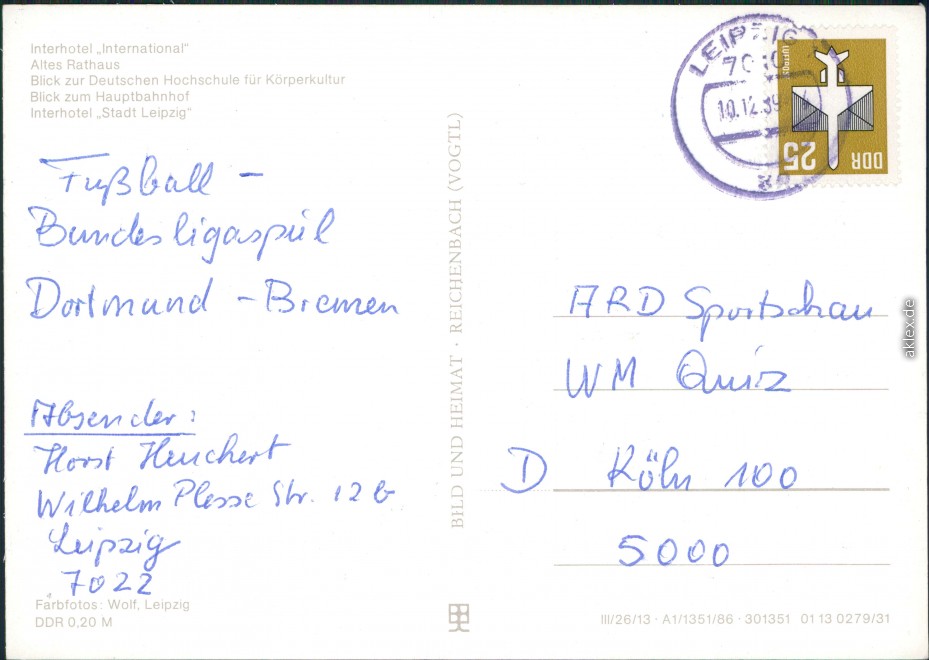 Interhotel „International“
Altes Rathaus
Blick zur Deutschen Hochschule für Körperkultur
Blick zum Hauptbahnhof
Interhotel „Stadt Leipzig“
Fußball -
Bundesligaspiel
Dortmund - Bremen
Absender:
Horst Heuchert
Wilhelm Plesse Str. 12 b
Leipzig
7022
Farbfotos: Wolf, Leipzig
DDR 0,20 M
BILD UND HEIMAT · REICHENBACH (VOGTL)
LEIPZIG
10.12.89
LUFTPOST
DDR
25
ARD Sportschau
WM Quiz
D Köln 100
5000
III/26/13 · A1/1351/86 · 301351 01 13 0279/31
aklex.de